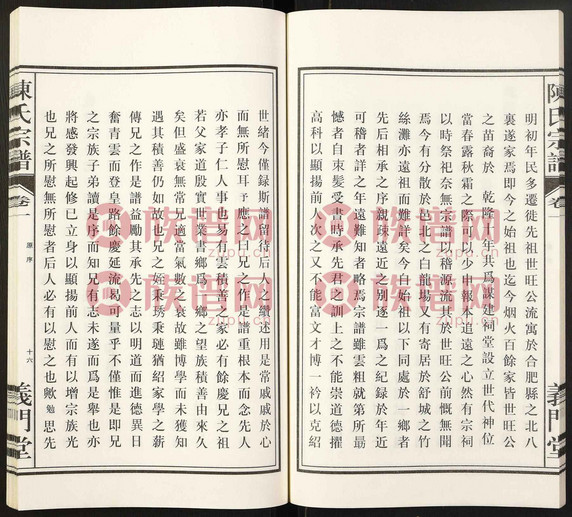 陳氏宗譜
卷一
明初年民多遷徙先祖世旺公流寓於合肥縣之北八
裏遂家焉即今之始祖也迄今烟火百餘家皆世旺公
之苗裔於 乾隆 年共爲謀建祠堂設立世代神位
當春露秋霜之際可以少申報本追遠之心然有宗祠
以時祭祀奈無宗譜以稽源流其於世旺公前慨無聞
焉今有分散於邑北之白龍場又有寄居於舒城之竹
絲灘亦遠祖而難詳矣今自始祖以下同處於一鄉者
先后相承之序親疎遠近之別逐一爲之紀録於年近
可稽者詳之年遠難知者略焉宗譜雖雲粗就第所最
憾者自束髮受書時承先君之訓上之不能崇道德擢
高科以顯揚前人次之又不能富文才博一衿以克紹
義門堂
陳氏宗譜
卷一
源序
十六
世緒今僅録斯譜留待后人之續述用是常戚戚於心
而無所慰耳予應之曰兄之作是譜重根本而念先人
亦孝子仁人事也易有雲積善之家必有餘慶兄之祖
若父家道殷實世業書鄉爲一鄉之望族積善由來久
矣但盛衰無常兄適當氣數之衰故雖博學而未獲知
遇其積善仍如故也兄之姪秉琇秉璉猶紹家學之薪
傳兄之作是譜益勵其承先之志以明道而進德異日
奮青雲而登皇路餘慶延流曷可量乎不僅惟是即兄
之宗族子弟讀是序而知兄有志未遂而爲是舉也亦
將感發興起修己立身以顯揚前人而有以增宗族光
也兄之所慰無所慰者后人必有以慰之也歟勉思先
義門堂
族譜网
zupu.cn
族譜网
zupu.cn